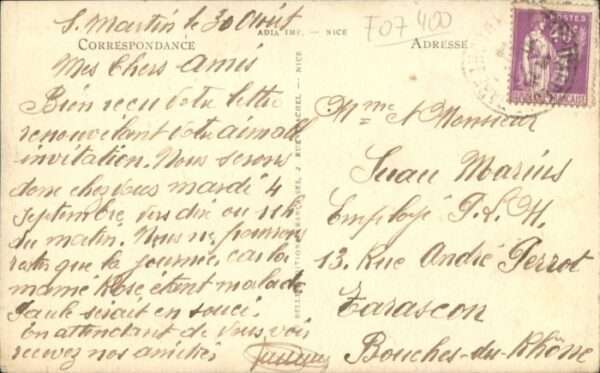 S. Martin le 30 Août
E07400
ADIA IMP. — NICE
CORRESPONDANCE
ADRESSE
POSTES
Mes Chers Amis
Bien reçu votre lettre
renouvelant votre aimable
invitation. Nous serons
donc chez vous mardi 4
Septembre vers dix ou 11h
du matin. Nous ne pouvons
rester que la journée, car la
mamé Rose, étant malade
Paule serait en souci.
En attendant de vous voir
recevez nos amitiés
Mme & Monsieur
Suau Marius
Employé P.L.M.
13. Rue André Perrot
Tarascon
Bouches-du-Rhône